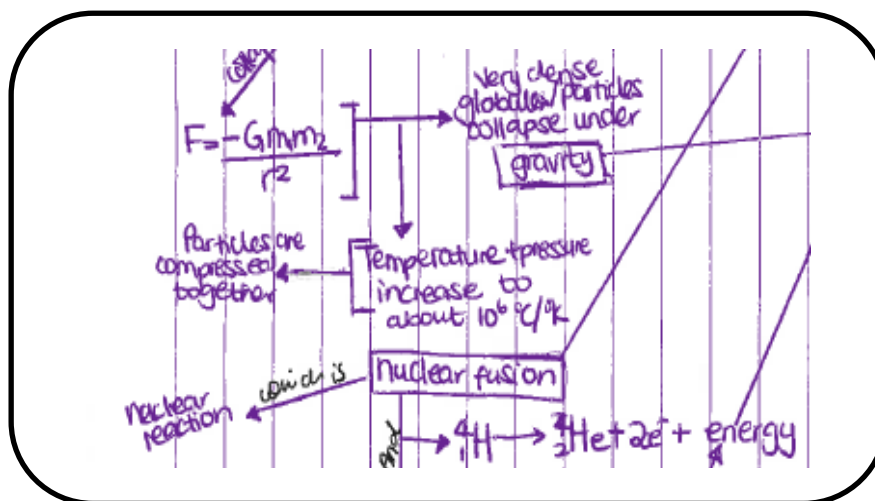 F = -Gm₁m₂
r²
Very dense
globules/particles
collapse under
gravity
Particles are
compressed
together
Temperature + pressure
increase to
about 10⁶ °C/°K
nuclear fusion
which is
nuclear
reaction
and
⁴₁H → ⁴₂He + 2e⁻ + energy